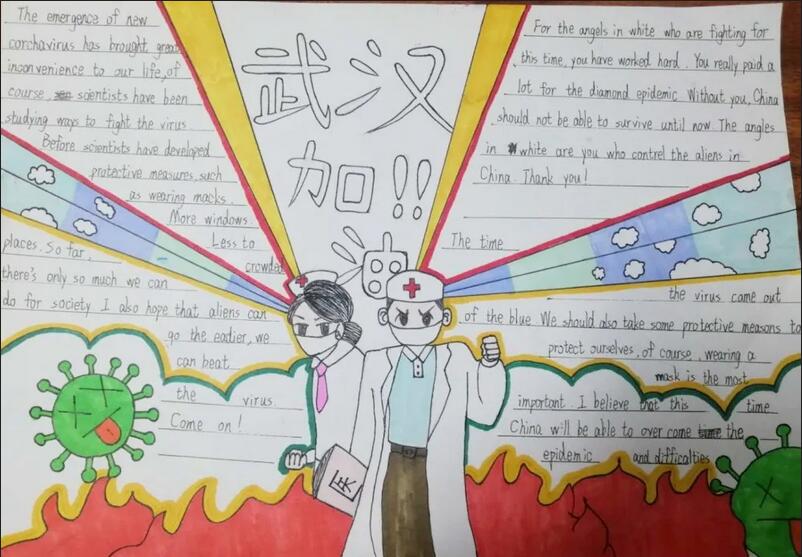 The emergence of new
corchavirus has brought great
inconvenience to our life, of
course, scientists have been
studying ways to fight the virus.
Before scientists have developed
protective measures, such
as wearing macks.
More windows
Less to
crowded
places. So far,
there's only so much we can
do for society. I also hope that aliens can
go the eadier, we
can beat
the virus.
Come on!
武汉
加!!
油
医
For the angels in white who are fighting for
this time, you have worked hard. You really paid a
lot for the diamond epidemic. Without you, China
should not be able to survive until now. The angles
in white are you who contrel the aliens in
China. Thank you!
The time
the virus came out
of the blue. We should also take some protective measures to
protect ourselves, of course, wearing a
mask is the most
important. I believe that this time
China will be able to over come the
epidemic and difficalties